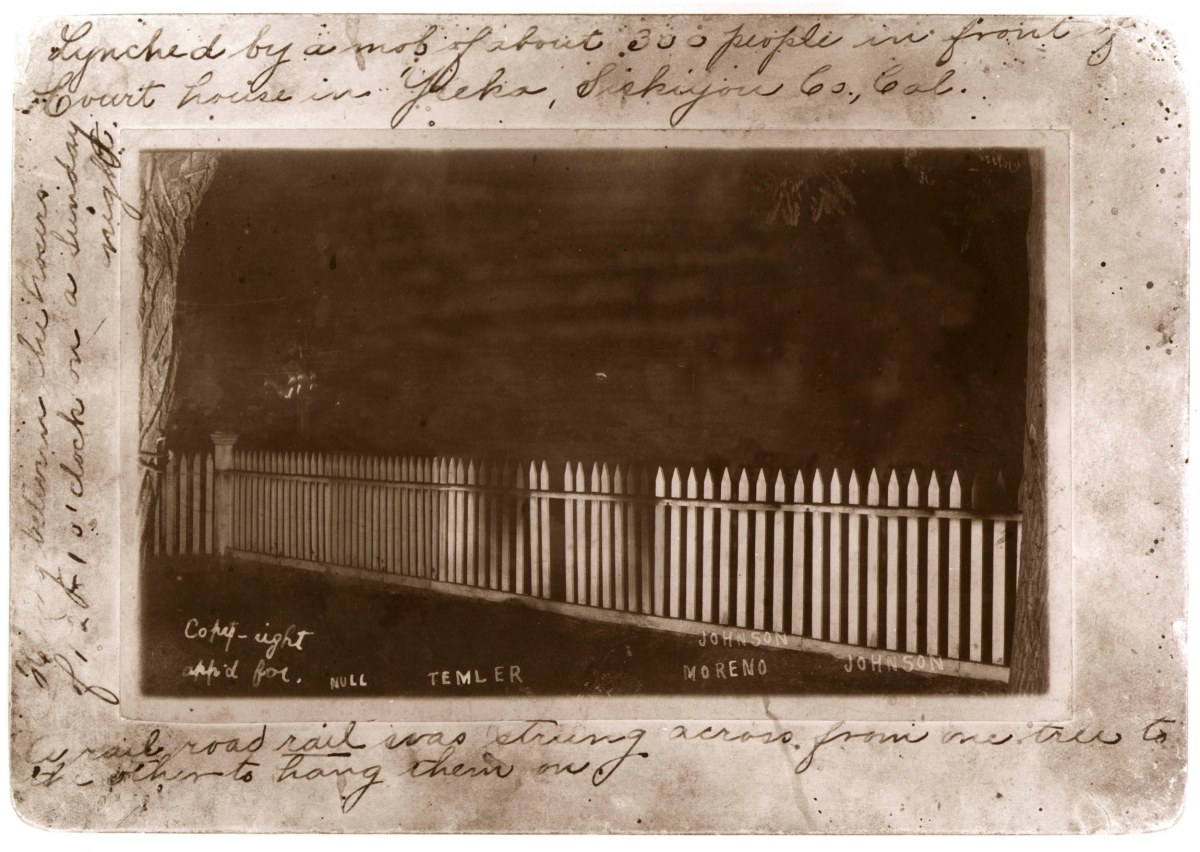 Lynched by a mob of about 300 people in front of
Court house in Yreka, Siskiyou Co., Cal.
between the hours
of 12 & 1 o'clock on a Sunday
night.
Copy-right
app'd for.
NULL
TEMLER
JOHNSON
MORENO
JOHNSON
A rail road rail was strung across from one tree to
the other to hang them on